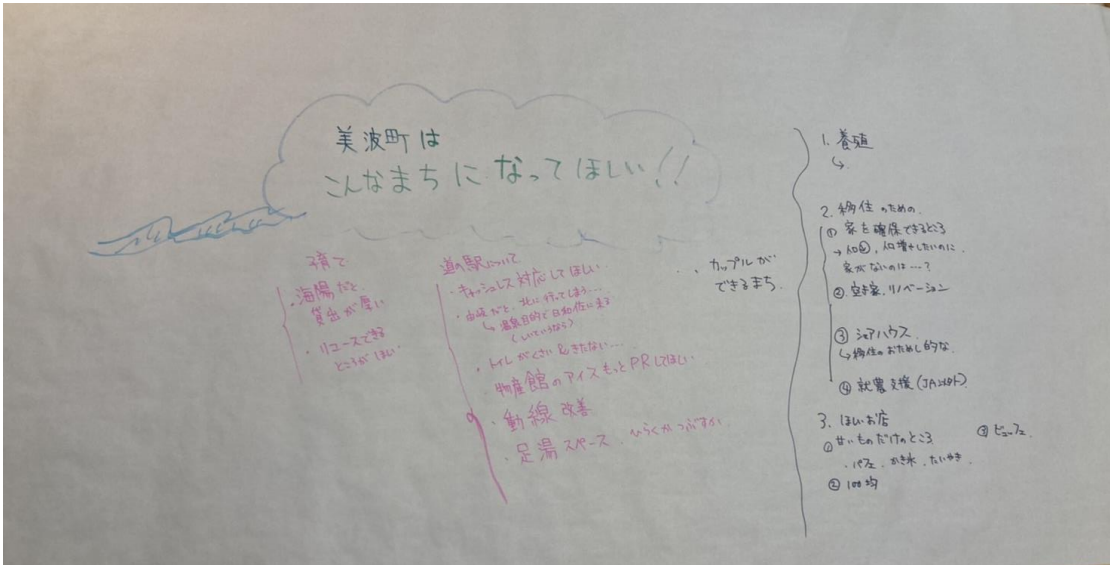 美波町は
こんなまちになってほしい!!
子育て
・海陽だと、
貸出が厚い
・リユースできる
ところがほしい
道の駅について
・キャッシュレス対応してほしい
・由岐だと、北に行ってしまう…
↳温泉目的で日和佐に来る
(しいていうなら)
・トイレがくさい&きたない…
・物産館のアイスもっとPRしてほしい
・動線改善
・足湯スペース、ひらくかつぶすか
・・・カップルが
できるまち
1. 養殖
↳
2. 移住のための
① 家を確保できるところ
→ 人口増やしたいのに
家がないのは…?
② 空き家、リノベーション
③ シェアハウス
↳移住のおためし的な
④ 就農支援(JA以外)
3. ほしいお店
① 甘いものだけのところ
・パフェ、かき氷、たいやき
② 100均
③ ビュッフェ